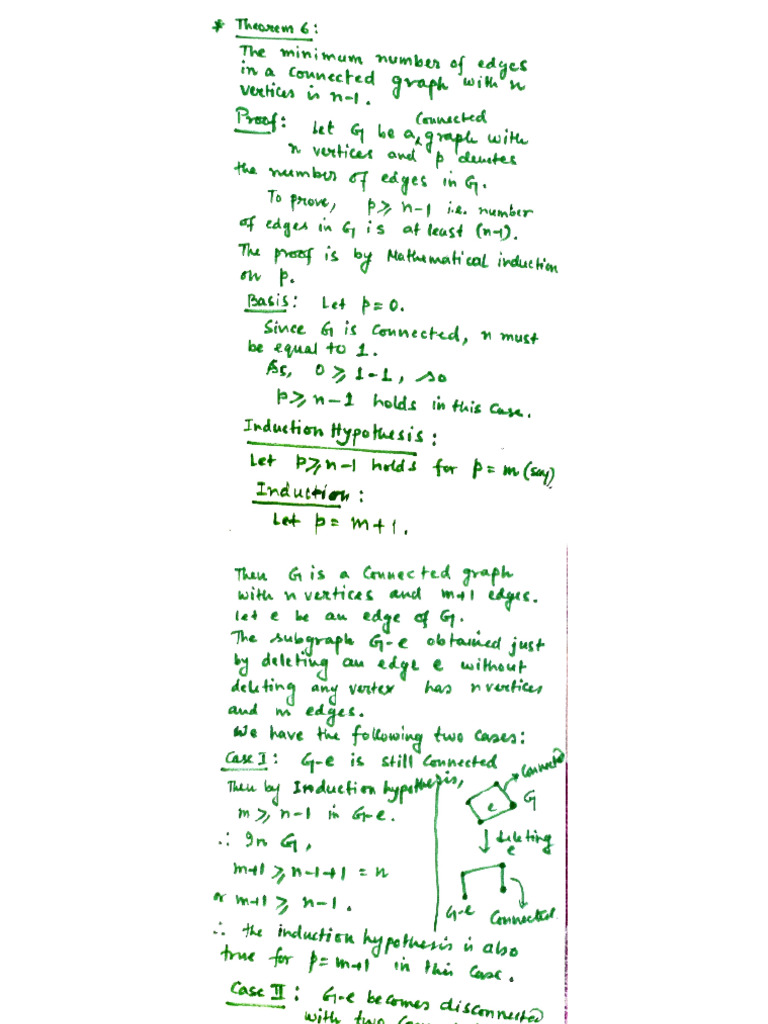 * Theorem 6:
The minimum number of edges
in a connected graph with n
vertices is n-1.
Connected
Proof: Let G be a graph with
n vertices and p denotes
the number of edges in G.
To prove, p ≥ n-1 i.e. number
of edges in G is at least (n-1).
The proof is by Mathematical induction
on p.
Basis: Let p = 0.
Since G is connected, n must
be equal to 1.
As, 0 ≥ 1-1, so
p ≥ n-1 holds in this case.
Induction Hypothesis:
Let p ≥ n-1 holds for p = m (say)
Induction:
Let p = m+1.
Then G is a connected graph
with n vertices and m+1 edges.
Let e be an edge of G.
The subgraph G-e obtained just
by deleting an edge e without
deleting any vertex has n vertices
and m edges.
We have the following two cases:
Case I: G-e is still connected
Then by Induction hypothesis,
m ≥ n-1 in G-e.
∴ In G,
m+1 ≥ n-1+1 = n
or m+1 ≥ n-1.
Connected
e G
deleting
e
G-e Connected
∴ the induction hypothesis is also
true for p = m+1 in this case.
Case II: G-e becomes disconnected
with two